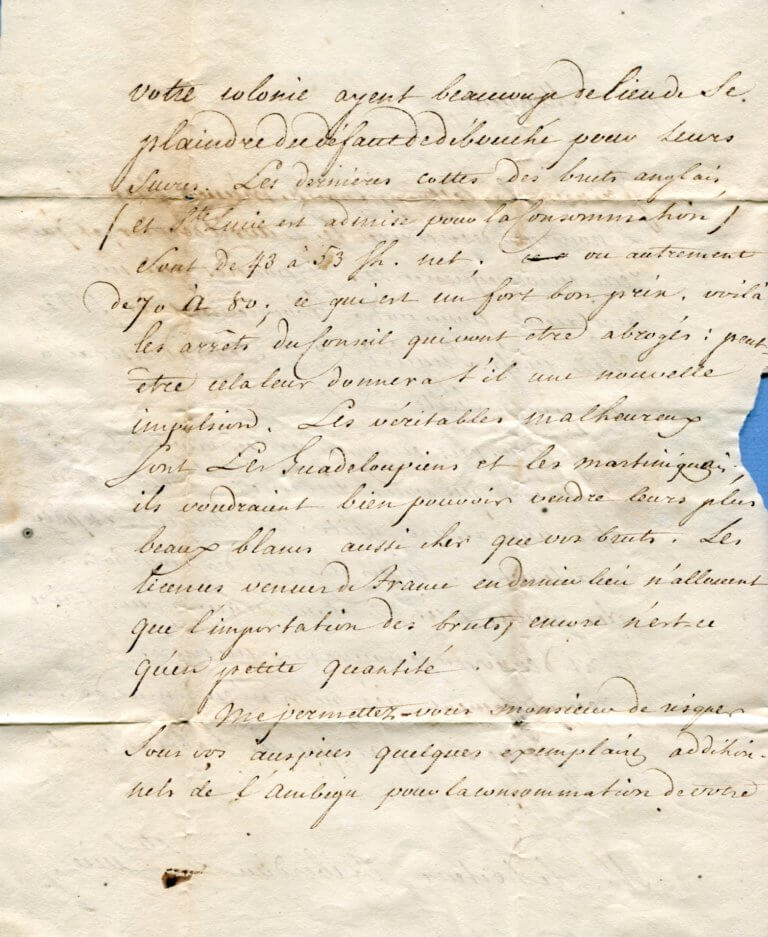 votre colonie ayent beaucoup de lieu de se
plaindre du défaut de débouché pour leurs
sucres. Les dernieres cottes des bruts anglais
( et Ste Lucie est admise pour la Consommation )
sont de 43 à 53 sh. net; ou autrement
de 70 à 80; ce qui est un fort bon prix. voilà
les arrêts du Conseil qui vont être abrogés: peut-
être cela leur donnera t'il une nouvelle
impulsion. Les véritables malheureux
sont Les Guadeloupiens et les martiniquais;
ils voudraient bien pouvoir vendre leurs plus
beaux blancs aussi cher que vos bruts. Les
licences venues de France en dernier lieu n'allouent
que l'importation des bruts, encore n'est-ce
qu'en petite quantité
Me permettez-vous monsieur de risquer
sous vos auspices quelques exemplaires addition-
nels de l'Ambigu pour la consommation de votre